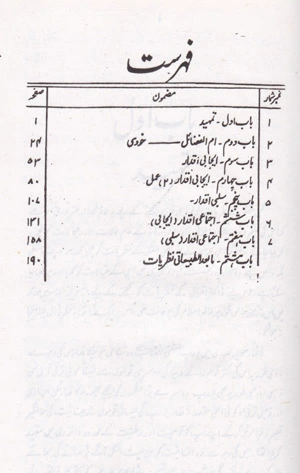 فہرست
نمبر شمار مضمون صفحہ
۱ باب اول - تمہید ۱
۲ باب دوم - ام الفضائل —— خودی ۲۴
۳ باب سوم - ایجابی اقدار ۵۳
۴ باب چہارم - ایجابی اقدار (۲) عمل ۸۰
۵ باب پنجم - سلبی اقدار - ۱۰۷
۶ باب ششم - اجتماعی اقدار (ایجابی) ۱۳۱
۷ باب ہفتم - اجتماعی اقدار (سلبی) ۱۵۸
باب ہشتم - مابعد الطبیعاتی نظریات ۱۹۰